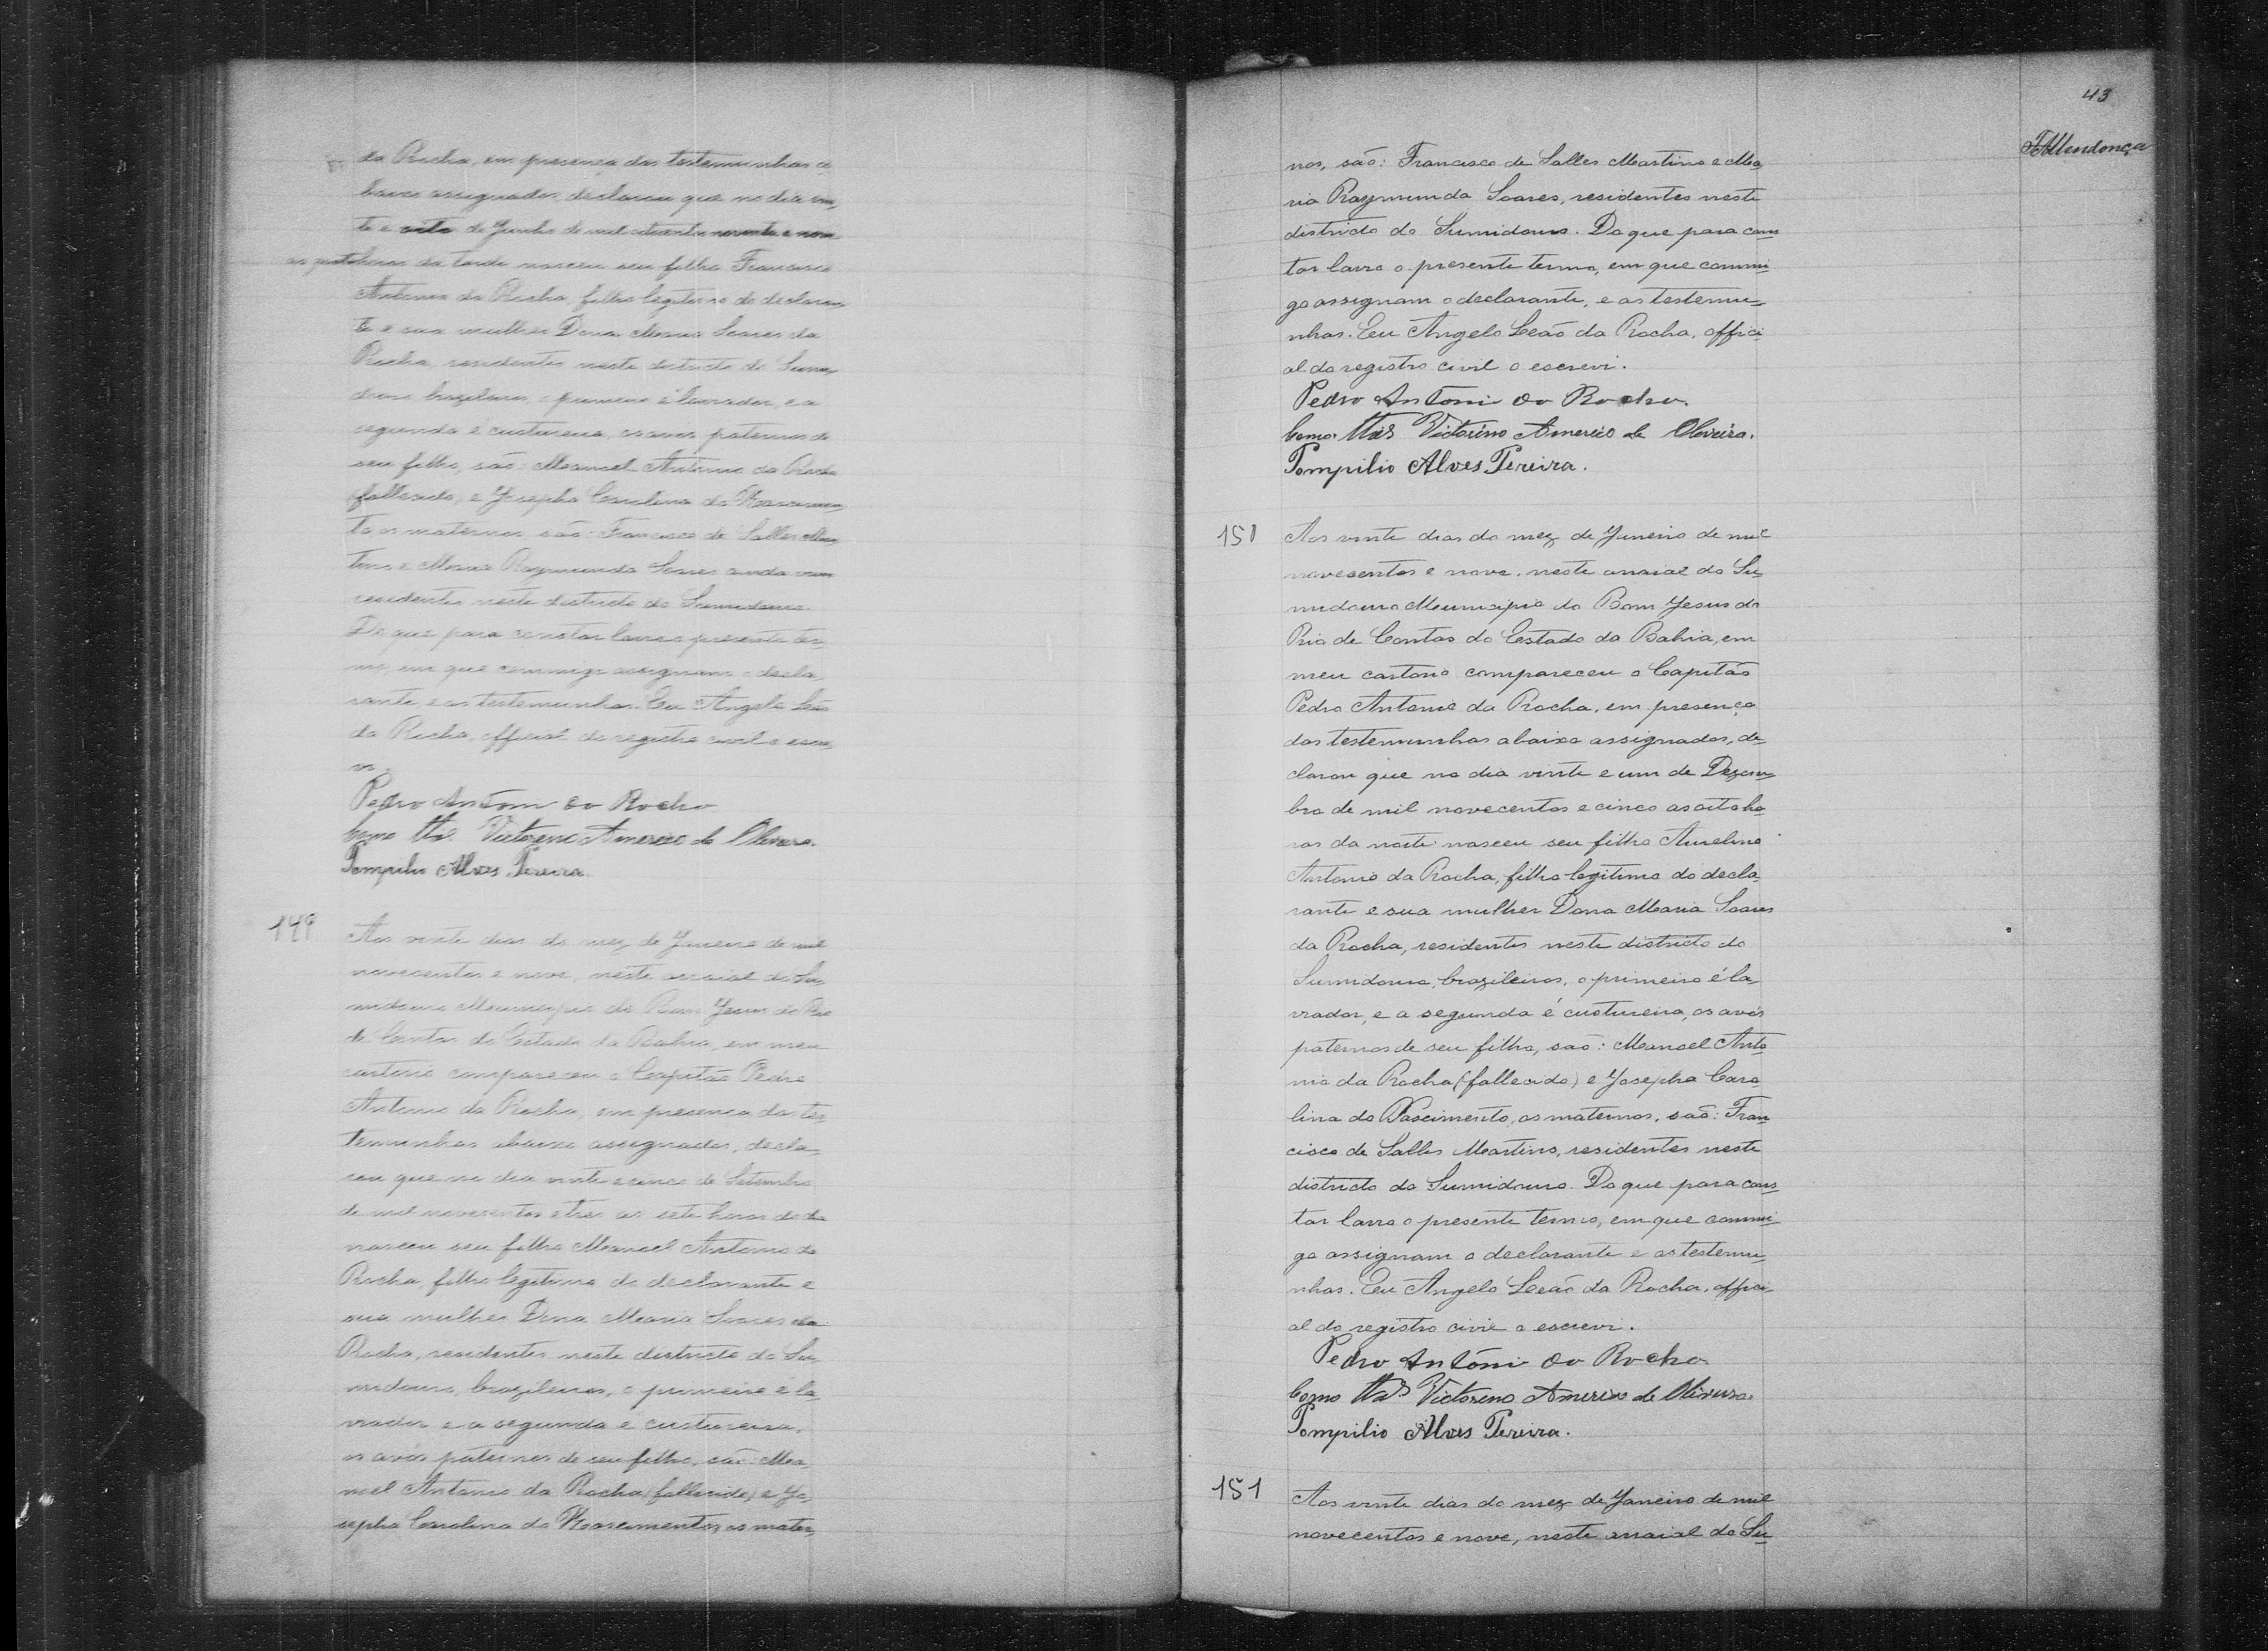 da Rocha, em presença das testemunhas a
baixo assignadas, declarou que no dia vin
te e oito de Junho de mil oitocentos noventa e nove
as quatro horas da tarde nasceu seu filho Francisco
Antonio da Rocha, filho legitimo do declaran
te e sua mulher Dona Maria Soares da
Rocha, residentes neste districto do Sumi
douro brazileiros, o primeiro é lavrador, e a
segunda é custureira, os avós paternos de
seu filho, são: Manoel Antonio da Rocha
(fallecido) e Josepha Carolina do Nascimen
to os maternos são: Francisco de Salles Mar
tins e Maria Raymunda Soares
residentes neste districto do Sumidouro.
Do que para constar lavro o presente ter
mo, em que commigo assignam o decla
rante, e as testemunhas. Eu Angelo Leão
da Rocha, official do registro civil o escre
vi.
Pedro Antoni da Rocha
Como ttas. Victorino Americo de Oliveira.
Pompilio Alves Pereira.
149 Aos vinte dias do mez de Janeiro de mil
novecentos e nove, neste arraial do Su
midouro Municipio do Bom Jesus do Rio
de Contas do Estado da Bahia, em meu
cartorio compareceu o Capitão Pedro
Antonio da Rocha, em presença das tes
temunhas abaixo assignadas, decla
rou que no dia vinte e cinco de Setembro
de mil novecentos e tres as sete horas do dia
nasceu seu filho Manoel Antonio da
Rocha, filho legitimo do declarante e
sua mulher Dona Maria Soares da
Rocha, residentes neste districto do Su
midouro, brazileiros, o primeiro é la
vrador e a segunda é custureira,
os avós paternos de seu filho, são: Ma
noel Antonio da Rocha (fallecido) e Jo
sepha Carolina do Nascimento, os mater
43
FMendonça
nos, são: Francisco de Salles Martins e Ma
ria Raymunda Soares, residentes neste
districto do Sumidouro. Do que para cons
tar lavro o presente termo, em que commi
go assignam o declarante, e as testemu
nhas. Eu Angelo Leão da Rocha, offici
al do registro civil o escrevi.
Pedro Antoni da Rocha.
Como ttas Victorino Americo de Oliveira.
Pompilio Alves Pereira.
150 Aos vinte dias do mez de Janeiro de mil
novecentos e nove, neste arraial do Su
midouro Municipio do Bom Jesus do
Rio de Contas do Estado da Bahia, em
meu cartorio compareceu o Capitão
Pedro Antonio da Rocha, em presença
das testemunhas abaixo assignadas, de
clarou que no dia vinte e um de Dezem
bro de mil novecentos e cinco as oito ho
ras da noite nasceu seu filho Aurelino
Antonio da Rocha, filho legitimo do decla
rante e sua mulher Dona Maria Soares
da Rocha, residentes neste districto do
Sumidouro, brazileiros, o primeiro é la
vrador, e a segunda é custureira, os avós
paternos de seu filho, são: Manoel Anto
nio da Rocha (fallecido) e Josepha Caro
lina do Nascimento, os maternos, são: Fran
cisco de Salles Martins, residentes neste
districto do Sumidouro. Do que para cons
tar lavro o presente termo, em que commi
go assignam o declarante e as testemu
nhas. Eu Angelo Leão da Rocha, offici
al do registro civil o escrevi.
Pedro Antoni da Rocha
Como ttas Victorino Americo de Oliveira.
Pompilio Alves Pereira.
151 Aos vinte dias do mez de Janeiro de mil
novecentos e nove, neste arraial do Su